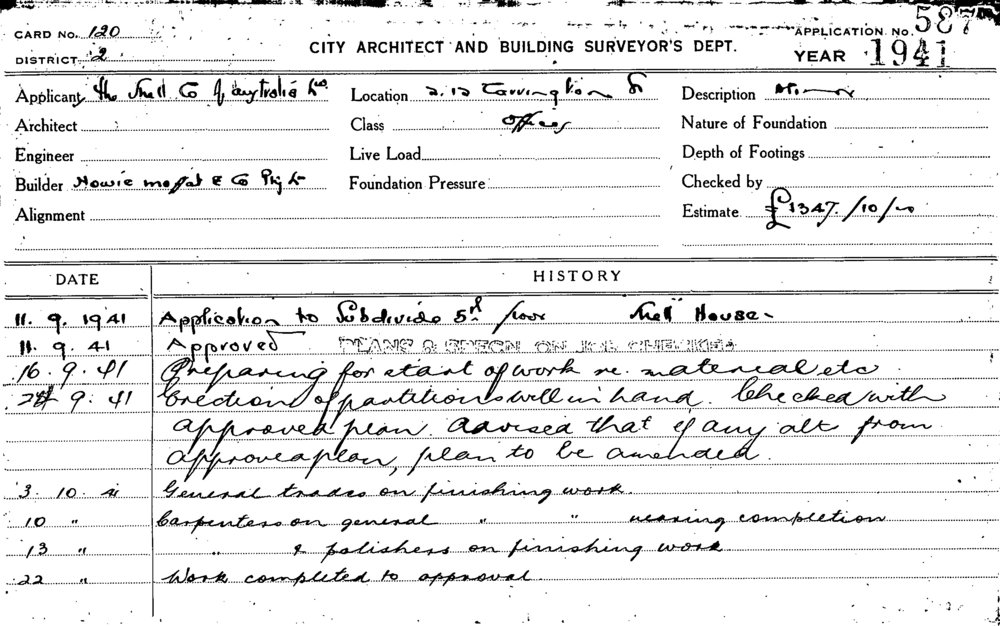 CARD No. 120
DISTRICT 2
CITY ARCHITECT AND BUILDING SURVEYOR'S DEPT.
APPLICATION No. 587
YEAR 1941
Applicant the Shell Co of australia Ltd. Location 2.12 Carrington St Description
Architect Class offices Nature of Foundation
Engineer Live Load Depth of Footings
Builder Howie moffat & Co Pty Ltd Foundation Pressure Checked by
Alignment Estimate £1347./10/-
DATE HISTORY
11. 9. 1941 Application to Subdivide 5th floor "Shell House"
11. 9. 41 Approved PLANS & SPECN ON JOB CHECKED
16. 9. 41 Preparing for start of work re. material etc
24 9. 41 Erection of partitions well in hand. Checked with
approved plan. advised that if any alt from
approved plan, plan to be amended.
3. 10. 41 General trades on finishing work.
10 " Carpenters on general " " nearing completion
13 " " & polishers on finishing work.
22 " Work completed to approval.